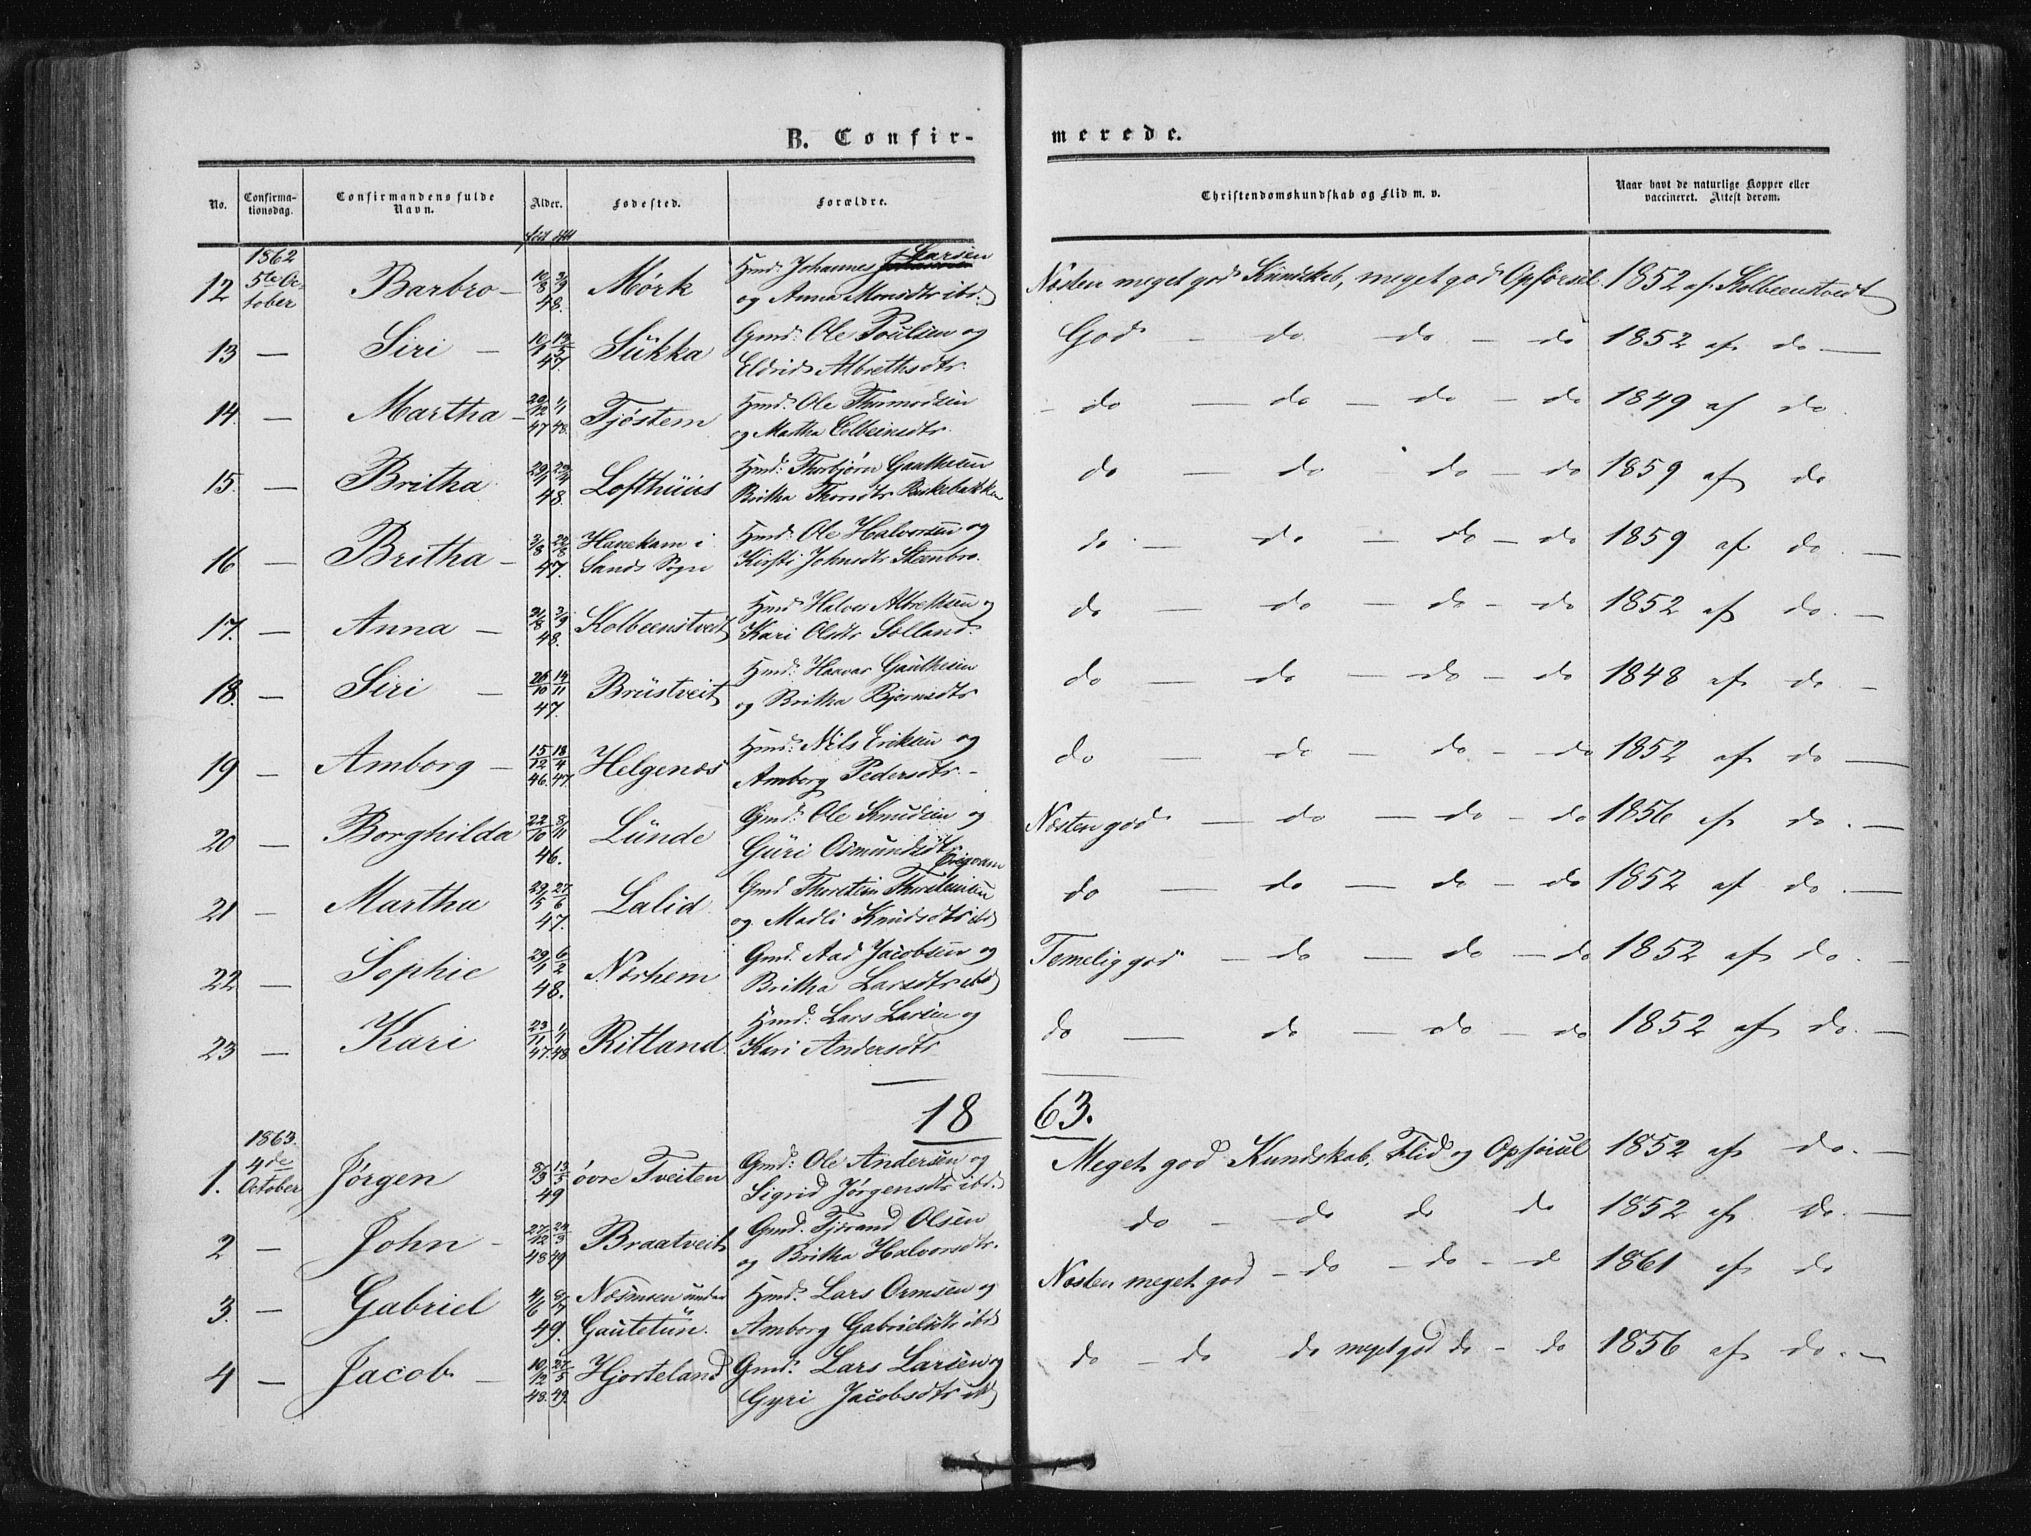 B. Confirmerede.
No. Confirmationsdag. Confirmandens fulde Navn. Alder. Fødested. Forældre. Christendomskundskab og Flid m. v. Naar havt de naturlige Kopper eller vaccineret. Attest derom.
født døbt
1862
12 5te October Barbro 10/8 3/9 48. Mørk Hmd: Johannes Larsen og Anna Monsdtr ibd. Næsten meget god Kundskab, meget god Opførsel. 1852 af Kolbeenstvedt
13 — Siri — 47. Sükka Gmd: Ole Poulsen og Eldrid Albrethsdtr. God — do do — do 1852 af do —
14. — Martha — 29/12 47 1/1 48. Tjøstem Hmd: Ole Thormodsen og Martha Colbeinsdtr. do — do — do — do 1849 af do.
15. — Britha 48. Lofthüüs Hmd: Thorbjørn Gauthesen Britha Thorsdtr Birkebakken do — do — do — do 1859 af do
16 — Britha — 3/8 22/8 47. Hanekam i Sands Sogn Hmd: Ole Halvorsen og Kirsti Johnsdtr Steenbro. do. — do — do — do 1859 af do. —
17. — Anna — 21/8 3/9 48. Kolbeenstvedt Hmd: Halvor Albrethsen og Kari Olsdtr Solland. do — do — do — do 1852 af do. —
18. — Siri — 25/10 14/11 47. Brüstveit Hmd: Haavar Gauthesen og Britha Bjørnsdtr do — do — do — do 1848 af do. —
19 — Amborg — 15/12 46. 18/4 47. Helgenæs Hmd: Nils Eriksen og Amborg Pedersdtr. — do — do — do — do 1852 af do —
20 — Borghilda 22/10 8/11 46. Lünde Gmd: Ole Knudsen og Güri Osmundsdtr Næsten god — do — do — do 1856 af do. —
21 — Martha 29/5 27/6 47. Lalid Gmd Thorstein Thorsteinsen og Madli Knudsdtr ibd do — do — do — do 1852 af do. —
22 — Sophie 29/1 6/2 48. Nørhem Gmd. Aad Jacobsen og Britha Larsdtr ibd Temelig god — do — do — do 1852 af do. —
23 — Kari 23/11 47. 1/1 48 Ritland. Hmd: Lars Larsen og Kari Andersdtr do — do — do — do 1852 af do. —
1863.
1863.
1. 4de October Jørgen 8/3 13/5 49 övre Tveiten Gmd: Ole Andersen og Sigrid Jørgensdtr ibd. Meget god Kundskab, Flid og Opførsel 1852 af do. —
2 — John — 27/12 48 24/3 49 Braatveit Gmd. Tjerand Olsen og Britha Halvorsdtr. do — do do do 1852 af do. —
3. — Gabriel 4/6 8/7 49. Næsmoen under Gautetün. Hmd. Lars Ormsen og Amborg Gabrielsdtr ibd Næsten meget god — do — do — do 1861 af do
4 — Jacob. — 10/12 48. 27/5 49. Hjorteland Gmd: Lars Larsen og Gyri Jacobsdtr ibd do — do do meget god do — do 1856 af do. —